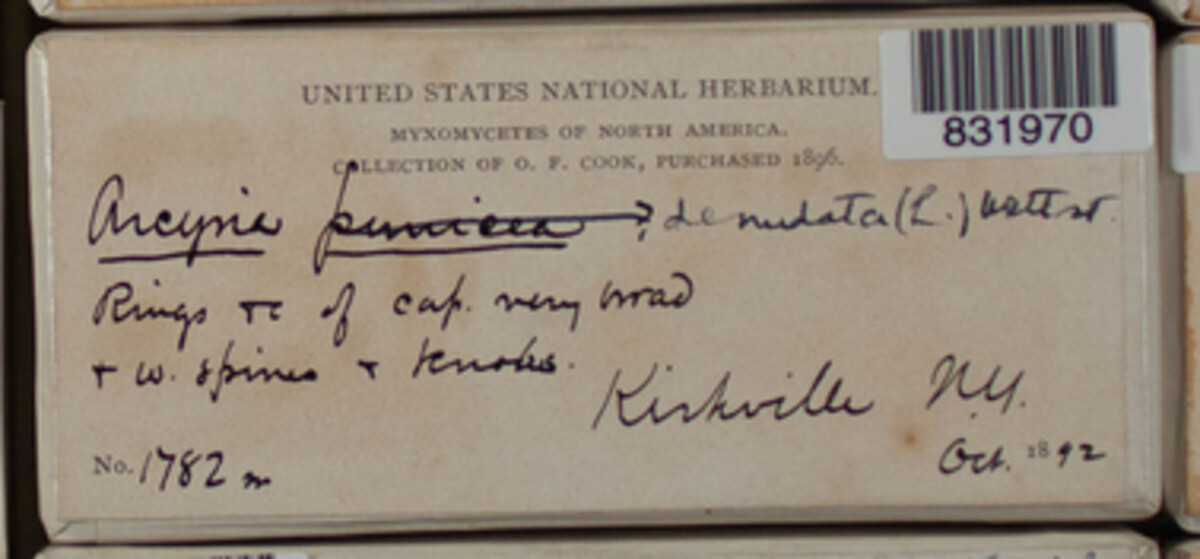 UNITED STATES NATIONAL HERBARIUM.
MYXOMYCETES OF NORTH AMERICA.
COLLECTION OF O. F. COOK, PURCHASED 1896.
831970
Arcyria punicea ? denudata (L.) Wettst.
Rings &c of cap. very broad
+ w. spines + knobs.
Kirkville N.Y.
No. 1782 m
Oct. 1892